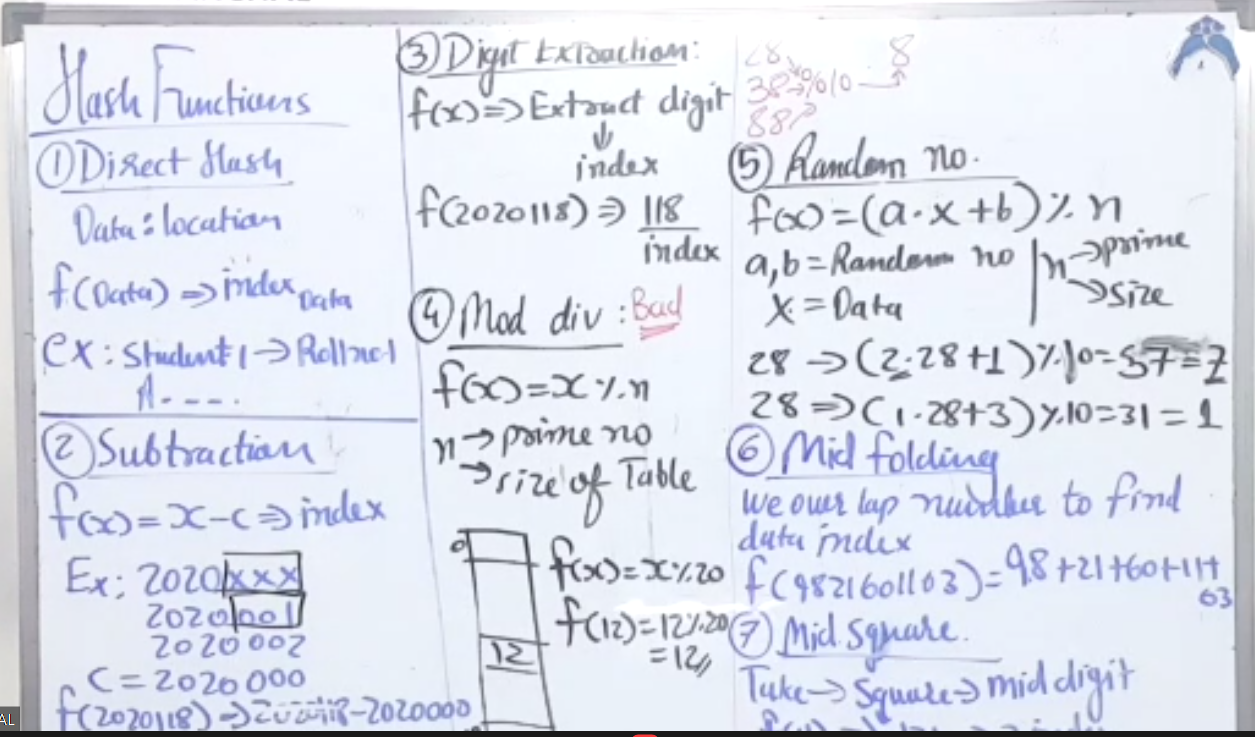 Hash Functions
① Direct Hash
Data : location
f(Data) => index Data
ex : Student 1 -> Roll no 1
② Subtraction
f(x) = x - c => index
Ex : 2020xxx
2020001
2020002
C = 2020000
f(2020118) => 2020118-2020000
③ Digit Extraction :
f(x) => Extract digit
↓
index
f(2020118) => 118
index
④ Mod div : Bad
f(x) = x % n
n -> prime no
-> size of Table
0
12
f(x) = x % 20
f(12) = 12 % 20
= 12 //
28
38 -> %10 -> 8
88
⑤ Random no.
f(x) = (a · x + b) % n
a, b = Random no
x = Data
n -> prime
-> size
28 => (2·28+1) % 10 = 57 = 7
28 => (1·28+3) % 10 = 31 = 1
⑥ Mid folding
we over lap number to find
data index
f(9821601163) = 98+21+60+11+
63
⑦ Mid Square.
Take -> Square -> mid digit
AL